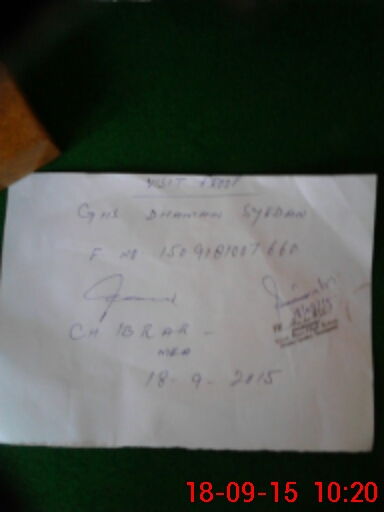 VISIT PROOF
GHS DHAMAN SYEDAN
F NO 1509181007660
CH IBRAR -
MEA
18-9-2015
18-09-15 10:20